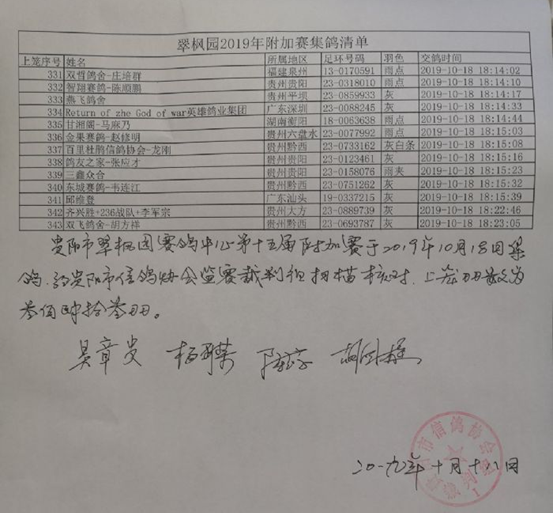 翠枫园2019年附加赛集鸽清单
上笼序号 姓名 所属地区 足环号码 羽色 交鸽时间
331 双哲鸽舍-庄培群 福建泉州 13-0170591 雨点 2019-10-18 18:14:02
332 智翔赛鸽-陈顺鹏 贵州贵阳 23-0318010 雨点 2019-10-18 18:14:10
333 燕飞鸽舍 贵州平坝 23-0859933 灰 2019-10-18 18:14:17
334 Return of zho God of war英雄鸽业集团 广东深圳 23-0088245 灰 2019-10-18 18:14:33
335 甘湘阁-马麻乃 湖南衡阳 18-0063638 雨点 2019-10-18 18:14:44
336 金果赛鸽-赵修明 贵州六盘水 23-0077992 雨点 2019-10-18 18:15:03
337 百里杜鹃信鸽协会-龙刚 贵州黔西 23-0733162 灰白条 2019-10-18 18:15:08
338 鸽友之家-张应才 贵州贵阳 23-0123461 灰 2019-10-18 18:15:16
339 三鑫众合 贵州贵阳 23-0158076 雨夹 2019-10-18 18:15:23
340 东城赛鸽-韦连江 贵州黔西 23-0751262 灰 2019-10-18 18:15:32
341 邱维登 广东汕头 19-0337215 灰 2019-10-18 18:15:39
342 齐兴胜+236战队+李军宗 贵州大方 23-0889739 灰 2019-10-18 18:22:46
343 双飞鸽舍-胡方祥 贵州黔西 23-0693787 灰 2019-10-18 18:23:05
贵阳市翠枫园赛鸽中心第十五届附加赛于2019年10月18日集
鸽,经贵阳市信鸽协会监赛裁判组扫描核对,上笼羽数为
叁佰肆拾叁羽。
吴章贵
二〇一九年十月十八日